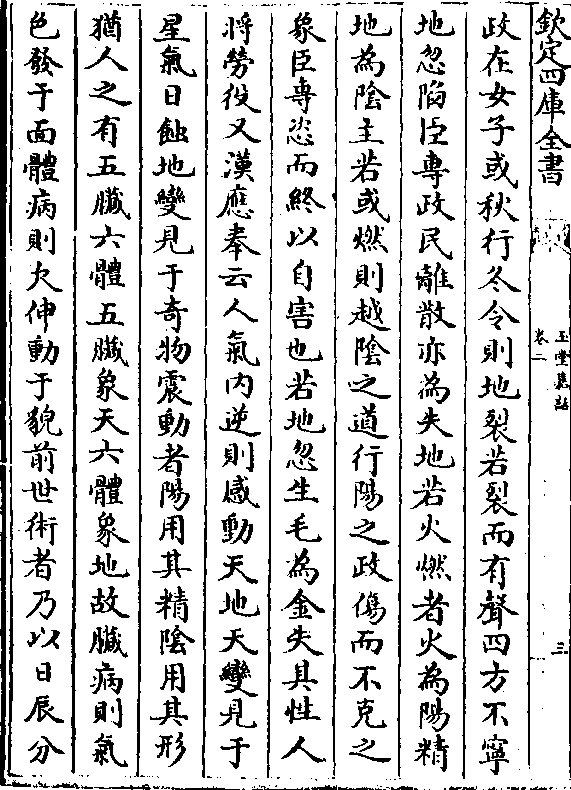 欽定四庫全書
玉堂嘉話
卷二
三
政在女子或秋行冬令則地裂若裂而有聲四方不寧
地忽陷臣專政民離散亦為失地若火燃者火為陽精
地為陰主若或燃則越陰之道行陽之政傷而不克之
象臣專恣而終以自害也若地忽生毛為金失其性人
將勞役又漢應奉云人氣内逆則感動天地天變見于
星氣日蝕地變見于奇物震動者陽用其精陰用其形
猶人之有五臟六體五臟象天六體象地故臟病則氣
色發于面體病則欠伸動于貌前世術者乃以日辰分